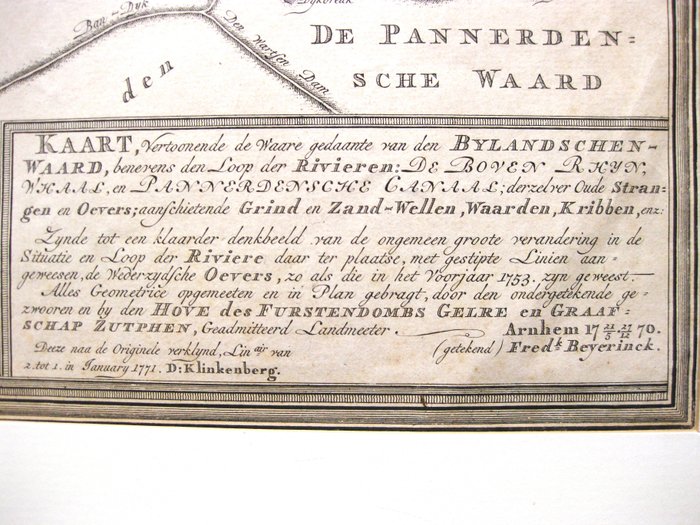 Dykbreuk
Ban - Dyk
Den Hartsen Dam
den
DE PANNERDEN=
SCHE WAARD
KAART, Vertoonende de Waare gedaante van den BYLANDSCHEN-
WAARD, benevens den Loop der Rivieren: DE BOVEN RHYN,
WHAAL, en PANNERDENSCHE CANAAL; derzelver Oude Stran-
gen en Oevers; aanschietende Grind en Zand-Wellen, Waarden, Kribben, enz:
Zynde tot een klaarder denkbeeld van de ongemeen groote verandering in de
Situatie en Loop der Riviere daar ter plaatse, met gestipte Linien aan-
geweesen, de Wederzydsche Oevers, zo als die in het Voorjaar 1753. zyn geweest.
Alles Geometrice opgemeeten en in Plan gebragt, door den ondergetekende ge-
zwooren en by den HOVE des FURSTENDOMBS GELRE en GRAAF-
SCHAP ZUTPHEN, Geadmitteerd Landmeeter. Arnhem 17 21/5 21/12 70.
Deeze naa de Originele verklynd, Lin air van (getekend) Fredk. Beyerinck.
2. tot 1. in January 1771. D: Klinkenberg.